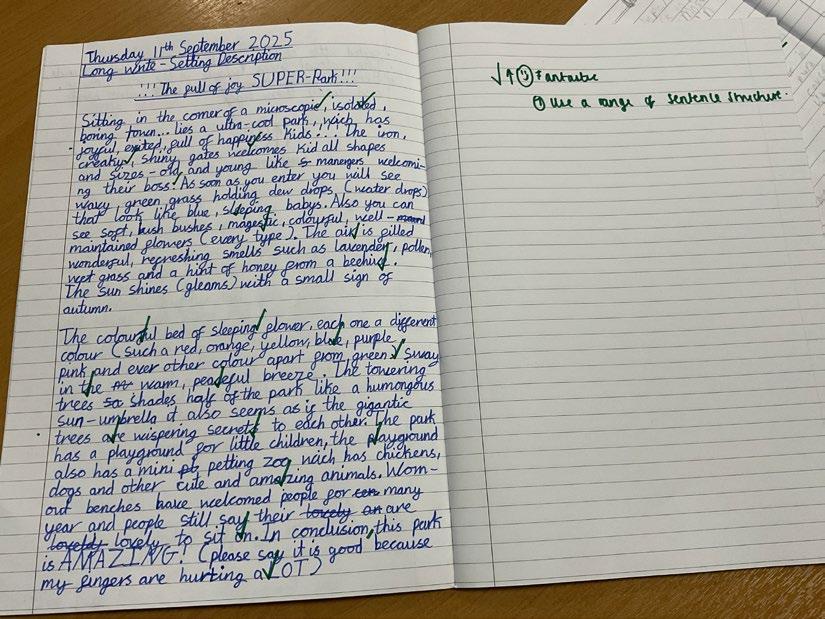 Thursday 11th September 2025
Long Write - Setting Description
!!! The full of joy SUPER-Park!!!
Sitting in the corner of a microscopic, isolated,
boring town... lies a ultra-cool park, wich has
joyful, exited, full of happiness kids!!! The iron,
creaky, shiny gates welcomes kid all shapes
and sizes - old and young like managers welcomi-
ng their boss. As soon as you enter you will see
wavy, green grass holding dew drops (water drops)
that look like blue, sleeping babys. Also you can
see soft, lush bushes, magestic, colourful, well-
maintained flowers (every type). The air is filled
wonderful, refreshing smells such as lavender, pollen,
wet grass and a hint of honey from a beehive.
The sun shines (gleams) with a small sign of
autumn.
The colourful bed of sleeping flower, each one a different
colour (such a red, orange, yellow, blue, purple
pink and ever other colour apart from green) sway
in the warm, peaceful breeze. The towering
trees shades half of the park like a humongous
sun-umbrella it also seems as if the gigantic
trees are wispering secrets to each other. The park
has a playground for little children, the playground
also has a mini petting zoo wich has chickens,
dogs and other cute and amazing animals. Worn-
out benches have welcomed people for many
year and people still say their are
lovely to sit on. In conclusion, this park
is AMAZING! (please say it is good because
my fingers are hurting a LOT)
Fantastic
Use a range of sentence structure.